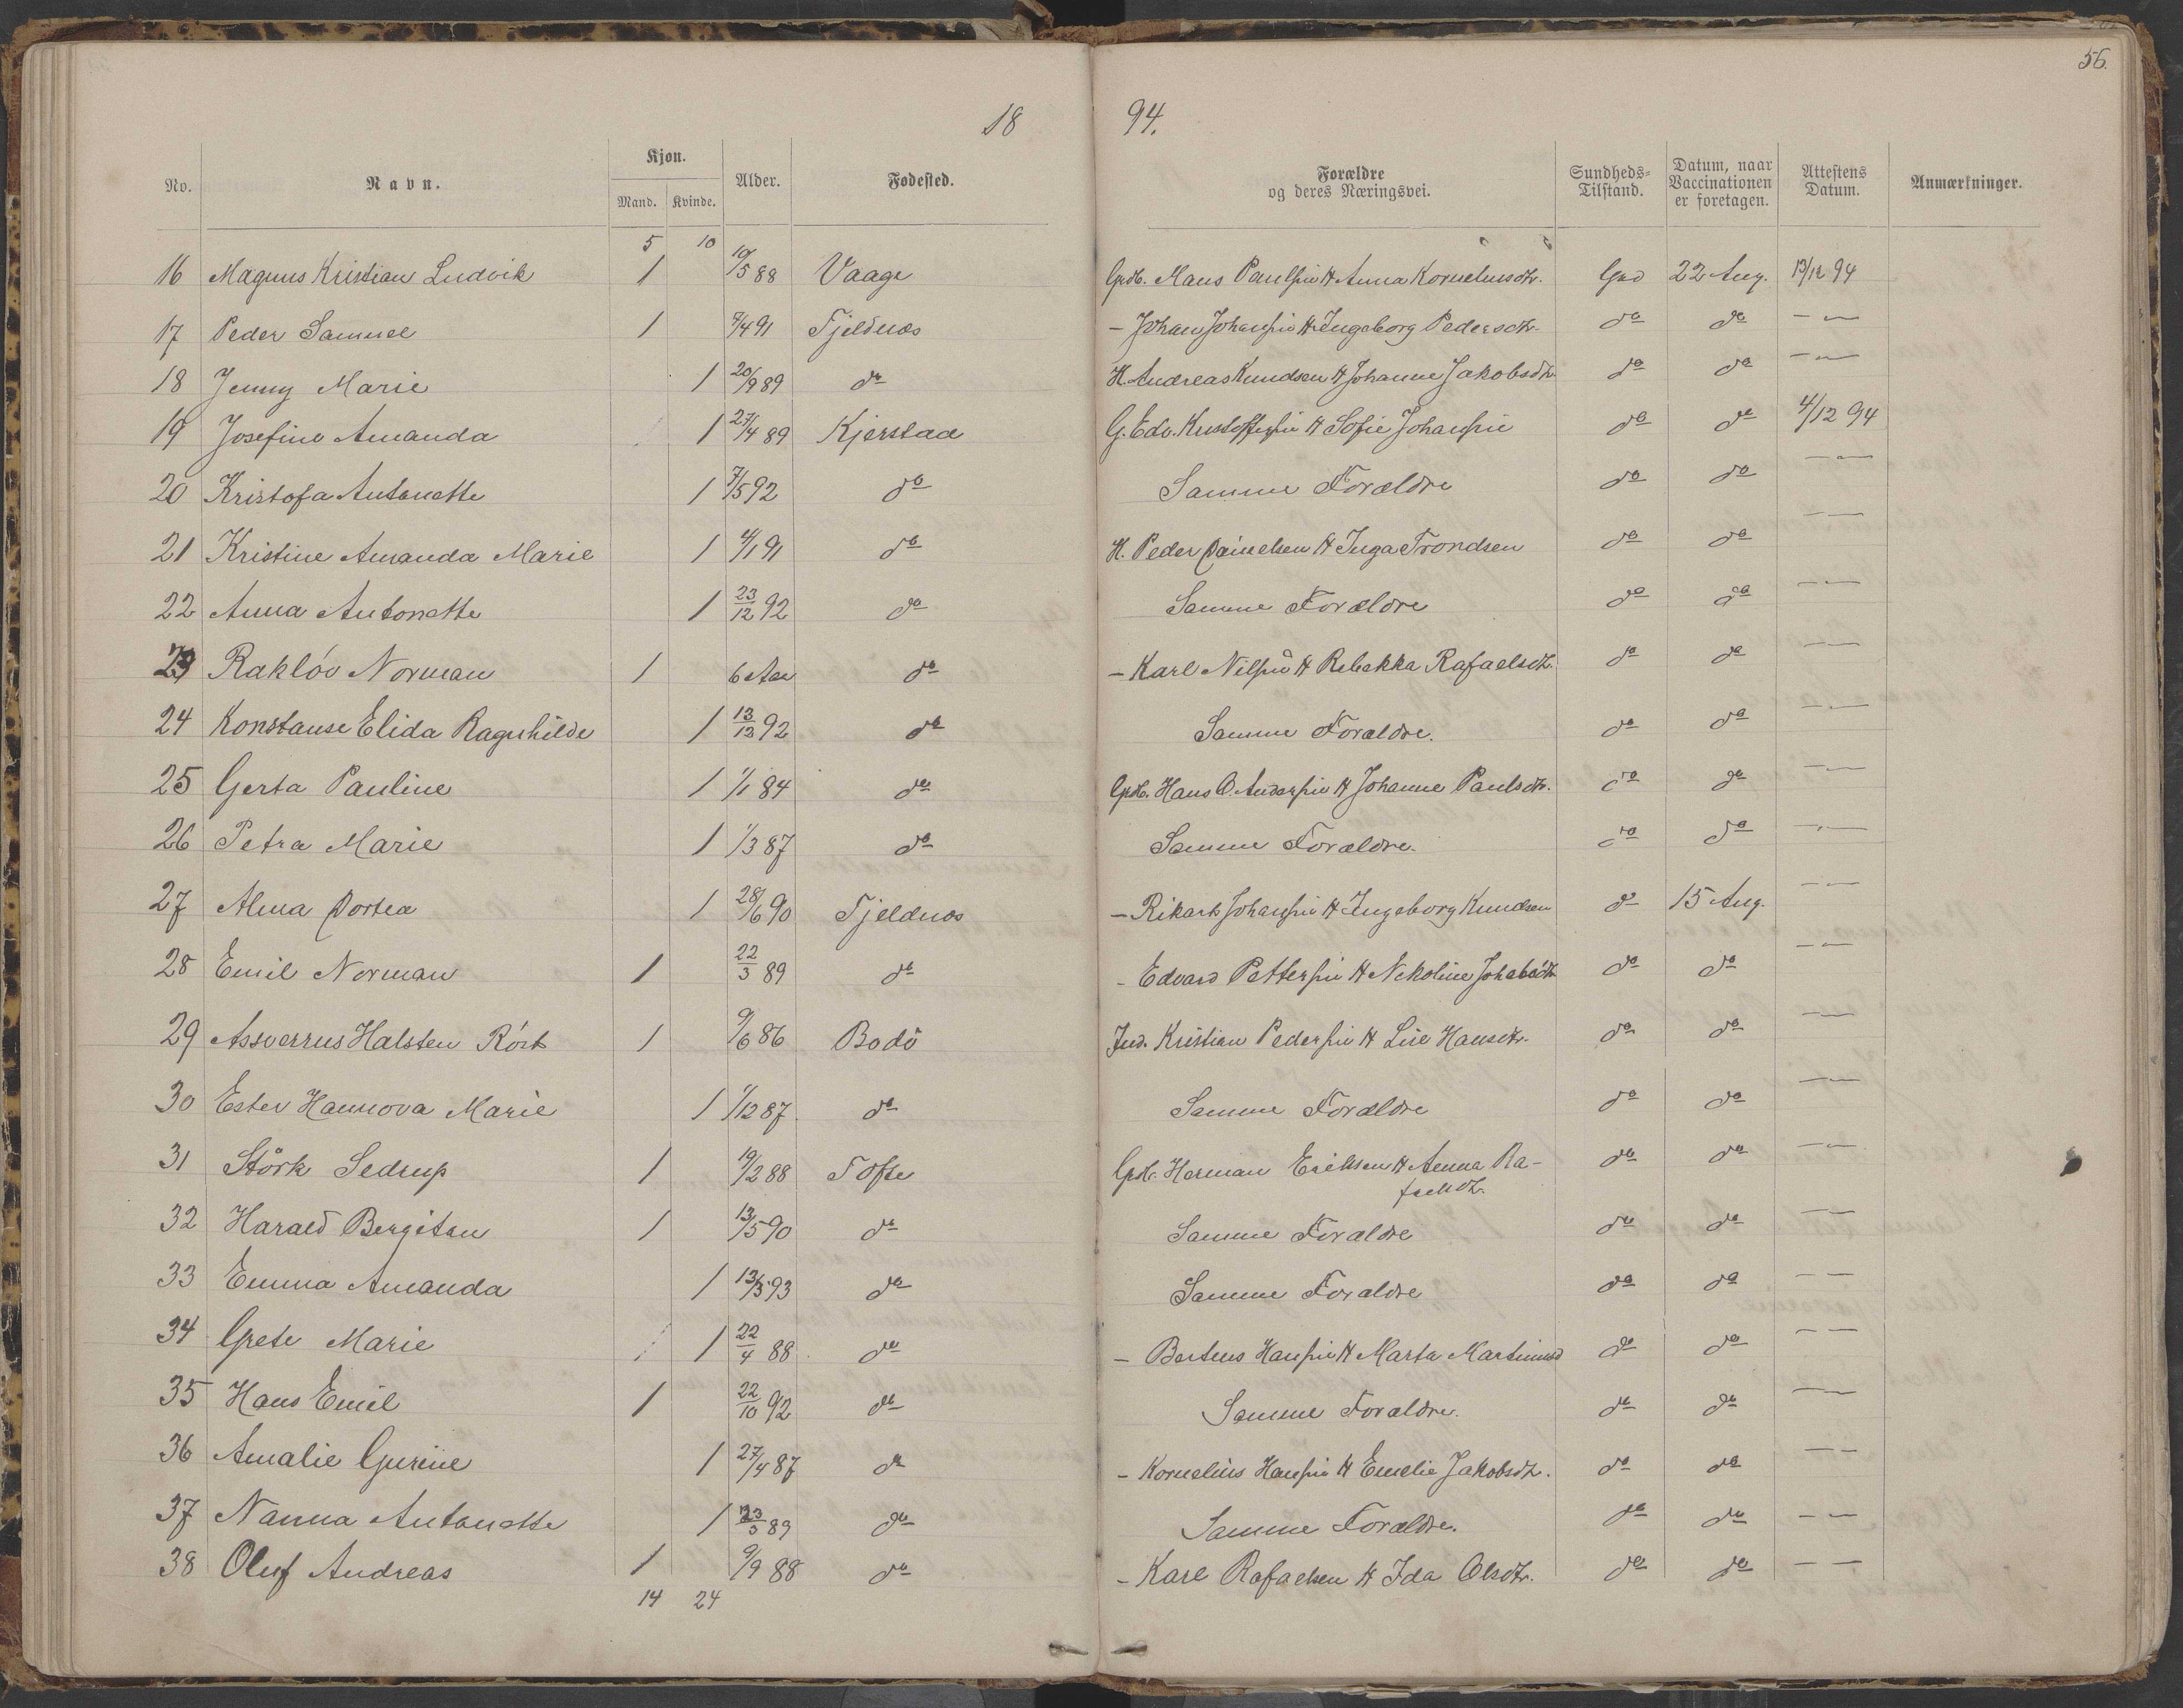 56.
18 94.
No. Navn. Kjøn. Mand. Kvinde. Alder. Fødested. Forældre og deres Næringsvei. Sundheds-Tilstand. Datum, naar Vaccinationen er foretagen. Attestens Datum. Anmærkninger.
5 10
16 Magnus Kristian Ludvik 1 19/5 88 Vaage Grdb. Mans Paulsen & Anna Korneliusdtr. God 22 Aug. 13/12 94
17 Peder Samuel 1 7/4 91 Fjeldnæs - Johan Johansen & Ingeborg Pedersdtr. do do — " —
18 Jenny Marie 1 20/9 89 do H. Andreas Knudsen & Johanne Jakobsdtr. do do — " —
19 Josefine Amanda 1 27/4 89 Kjerstad G. Edv. Kristoffersen & Sofie Johansen do do 4/12 94
20 Kristofa Antonette 1 7/5 92 do Samme Forældre do do — " —
21 Kristine Amanda Marie 1 4/1 91 do H. Peder Danielsen & Inga Trondsen do do — " —
22 Anna Antonette 1 23/12 92 do Samme Forældre do do — " —
23 Rakløv Norman 1 6 Aar do - Karl Nilsen & Rebekka Rafaelsdtr. do do — " —
24 Konstanse Elida Ragnhilde 1 13/12 92 do Samme Forældre. do do — " —
25 Gerta Pauline 1 1/1 84 do Grdb. Hans O. Andersen & Johanne Paulsdtr. do do — " —
26 Petra Marie 1 1/3 87 do Samme Forældre. do do — " —
27 Alma Dortea 1 28/6 90 Fjeldnæs - Rikart Johansen & Ingeborg Knudsen do 15 Aug. — " —
28 Emil Norman 1 22/3 89 do - Edvard Pettersen & Nekoline do do — " —
29 Assverrus Halsten Röst 1 9/6 86 Bodö Ind. Kristian Pedersen & Lise Hansdtr. do do — " —
30 Ester Hannova Marie 1 1/12 87 do Samme Forældre do do — " —
31 Störk Sedrup 1 19/2 88 Tofte Grdb. Herman Eriksen & Anna Ra-
faelsdtr. do do — " —
32 Harald Bergitan 1 13/5 90 do Samme Forældre do do — " —
33 Emma Amanda 1 13/3 93 do Samme Forældre do do — —
34 Grete Marie 1 22/4 88 do - Berteus Hansen & Marta Martinusd do do — —
35 Hans Emil 1 22/10 92 do Samme Forældre. do do — " —
36 Amalie Gurine 1 27/4 87 do - Kornelius Hansen & Emelie Jakobsdtr. do do — " —
37 Nanna Antonette 1 23/3 89 do Samme Forældre. do do — —
38 Oluf Andreas 1 9/9 88 do - Karl Rafaelsen & Ida Olsdtr. do do — —
14 24